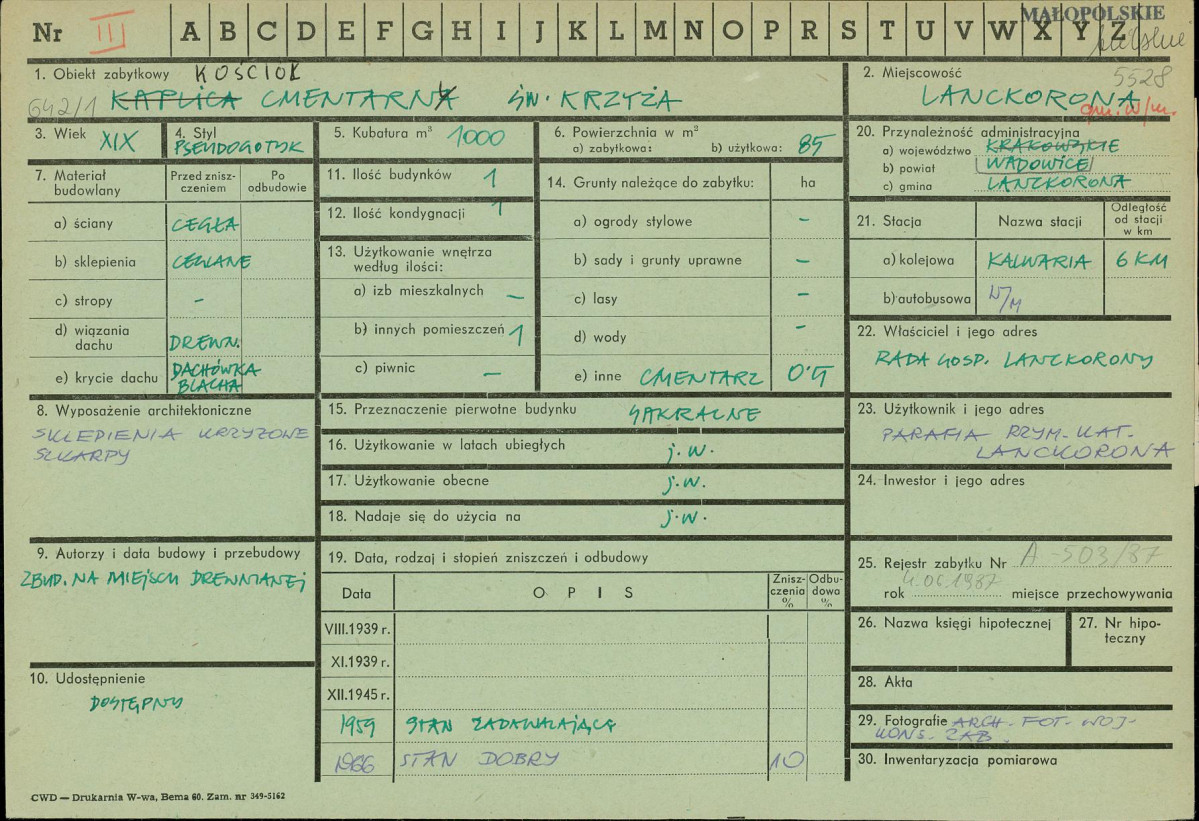 MAŁOPOLSKIE
Nr III A B C D E F G H I J K L M N O P R S T U V W X Y Z
bielskie
1. Obiekt zabytkowy KOŚCIÓŁ
642/1 KAPLICA CMENTARNY ŚW. KRZYŻA
2. Miejscowość 5528
LANCKORONA
gm. w/m.
3. Wiek XIX
4. Styl PSEUDOGOTYK
5. Kubatura m³ 1000
6. Powierzchnia w m²
a) zabytkowa: b) użytkowa: 85
20. Przynależność administracyjna
a) województwo KRAKOWSKIE
b) powiat WADOWICE
c) gmina LANCKORONA
7. Materiał budowlany
Przed zniszczeniem
Po odbudowie
a) ściany CEGŁA
b) sklepienia CEGLANE
c) stropy –
d) wiązania dachu DREWN.
e) krycie dachu DACHÓWKA
BLACHA
11. Ilość budynków 1
12. Ilość kondygnacji 1
13. Użytkowanie wnętrza
według ilości:
a) izb mieszkalnych –
b) innych pomieszczeń 1
c) piwnic –
14. Grunty należące do zabytku: ha
a) ogrody stylowe –
b) sady i grunty uprawne –
c) lasy –
d) wody –
e) inne CMENTARZ
21. Stacja Nazwa stacji Odległość od stacji w km
a) kolejowa KALWARIA 6 KM
b) autobusowa W/M
22. Właściciel i jego adres
RADA GOSP. LANCKORONY
8. Wyposażenie architektoniczne
SKLEPIENIA KRZYŻOWE
SKARPY
15. Przeznaczenie pierwotne budynku SAKRALNE
16. Użytkowanie w latach ubiegłych j.w.
17. Użytkowanie obecne j.w.
18. Nadaje się do użycia na j.w.
23. Użytkownik i jego adres
PARAFIA RZYM.-KAT.
LANCKORONA
24. Inwestor i jego adres
9. Autorzy i data budowy i przebudowy
ZBUD. NA MIEJSCU DREWNIANEJ
19. Data, rodzaj i stopień zniszczeń i odbudowy
Data OPIS Zniszczenia % Odbudowa %
VIII.1939 r.
XI.1939 r.
XII.1945 r.
1959 STAN ZADAWALAJĄCY
1966 STAN DOBRY 10
25. Rejestr zabytku Nr A-503/87
rok 4.06.1987 miejsce przechowywania
26. Nazwa księgi hipotecznej
27. Nr hipoteczny
10. Udostępnienie
DOSTĘPNY
28. Akta
29. Fotografie ARCH. FOT. WOJ-
KONS. ZAB.
30. Inwentaryzacja pomiarowa
CWD — Drukarnia W-wa, Bema 60. Zam. nr 349-5162